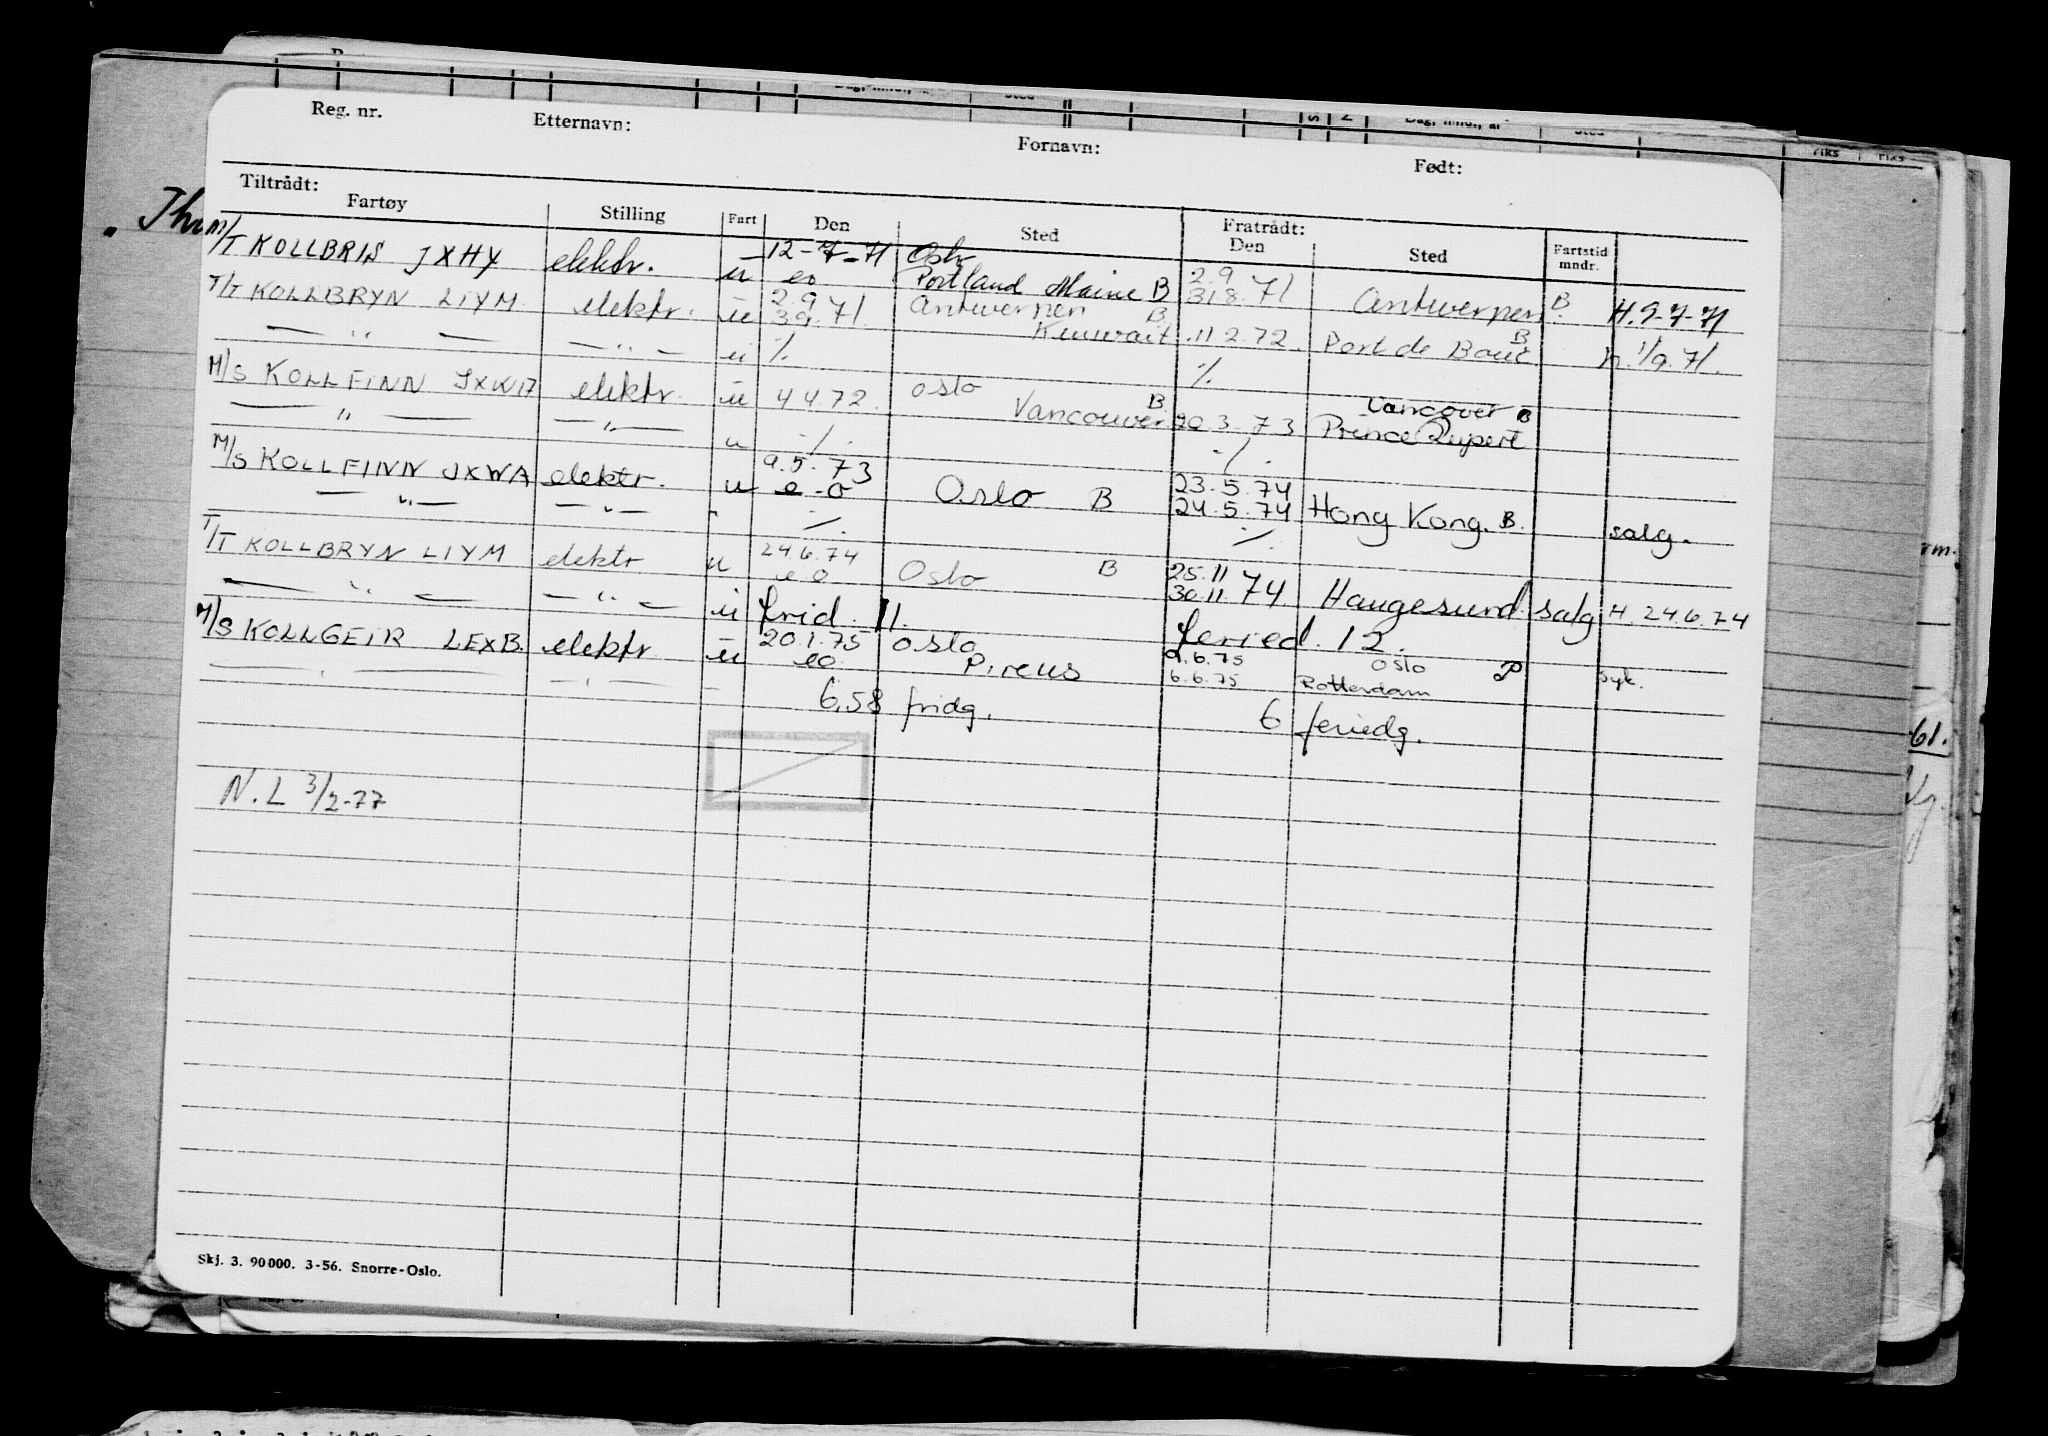 Reg. nr. Etternavn: Fornavn: Født:
Tiltrådt: Fratrådt:
Fartøy Stilling Fart Den Sted Den Sted Fartstid mndr.
M/T KOLLBRIS JXHY elektr. u 12-7-71 Oslo
eo Portland Maine B 2.9 31.8.71 Antwerpen B H. 9-7-71
T/T KOLLBRYN LIYM elektr. u 2.9 3.9.71 Antwerpen B
— " — — " — u ·/. Kuwait 11.2.72 Port de Bouc B. h. 1/9.71.
·/.
M/S KOLLFINN JXWA elektr. u 4 4 72. Oslo B
— " — — " — u ·/. Vancouver 20.3.73 Vancover B Prince Rupert
·/.
M/S KOLLFINN JXWA elektr. u 9.5.73 e-o Oslo B 23.5.74 24.5.74 Hong Kong. B. salg.
— " — — " — " ·/. ·/.
T/T KOLLBRYN LIYM elektr u 24.6.74 eo Oslo B 25.11 30.11.74. Haugesund salg H. 24.6.74
— " — — " — u frid. 11. feried. 12.
M/S KOLLGEIR LEXB. elektr u 20.1.75 eo Oslo Pireus 9.6.75 6.6.75 Oslo Rotterdam P syk.
6,58 fridg. 6 feriedg.
N.L 3/2-77
Skj. 3. 90000. 3-56. Snorre-Oslo.
61.